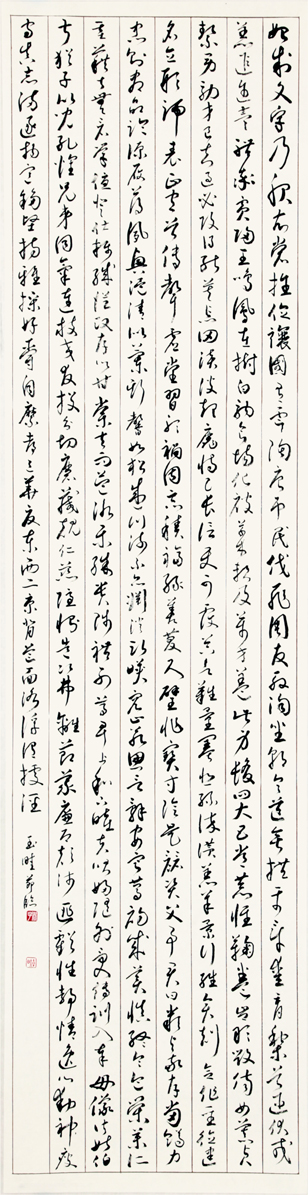 始制文字乃服衣裳推位讓國有虞陶唐吊民伐罪周發商湯坐朝問道垂拱平章愛育黎首臣伏戎
羌遐邇壹體率賓歸王鳴鳳在樹白駒食場化被草木賴及萬方蓋此身髮四大五常恭惟鞠養豈敢毀傷女慕貞
絜男效才良知過必改得能莫忘罔談彼短靡恃己長信使可覆器欲難量墨悲絲染詩讚羔羊景行維賢剋念作聖德建
名立形端表正空谷傳聲虛堂習聽禍因惡積福緣善慶尺璧非寶寸陰是競資父事君曰嚴與敬孝當竭力
忠則盡命臨深履薄夙興溫凊似蘭斯馨如松之盛川流不息淵澄取映容止若思言辭安定篤初誠美慎終宜令榮業所
基藉甚無竟學優登仕攝職從政存以甘棠去而益詠樂殊貴賤禮別尊卑上和下睦夫唱婦隨外受傅訓入奉母儀諸姑伯
叔猶子比兒孔懷兄弟同氣連枝交友投分切磨箴規仁慈隱惻造次弗離節義廉退顛沛匪虧性靜情逸心動神疲
守真志滿逐物意移堅持雅操好爵自縻都邑華夏東西二京背芒面洛浮渭據涇